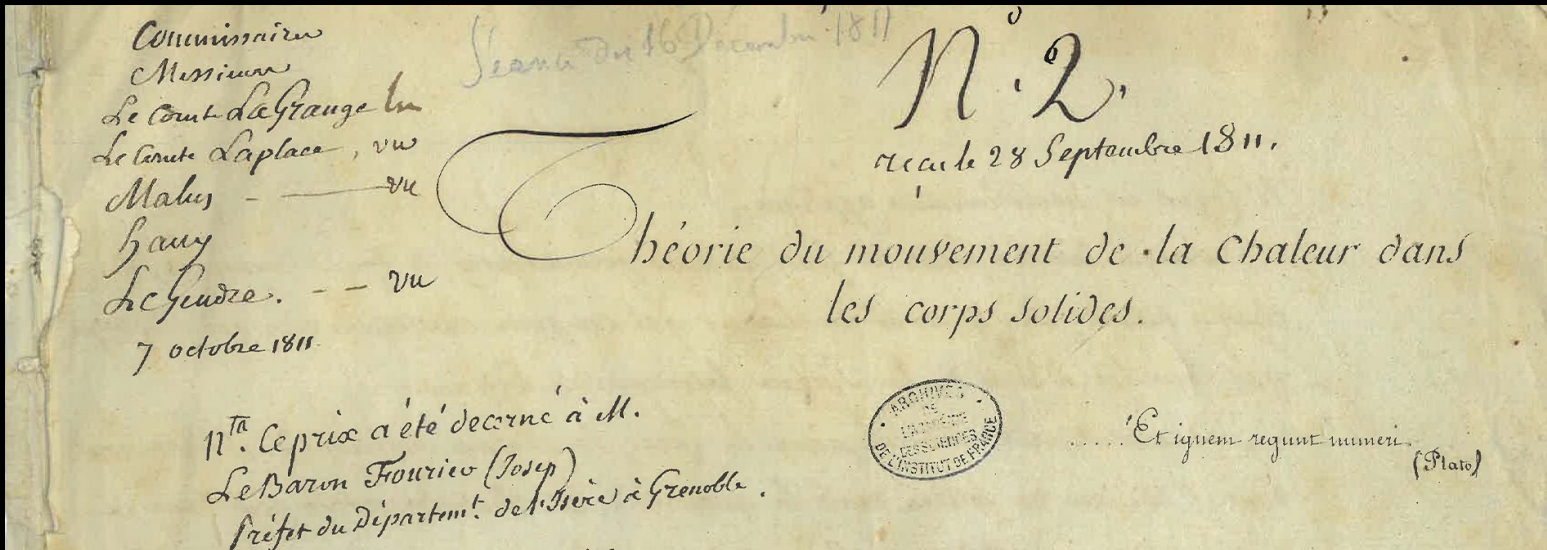 Commissaires
Messieurs
Le Comte LaGrange lu
Le Comte Laplace, vu
Malus - — vu
hauy
LeGendre. - — vu
7 octobre 1811.
Séance du 16 Decembre 1811
N.º 2.
reçu le 28 Septembre 1811.
Théorie du mouvement de la Chaleur dans
les corps solides.
nta. Ce prix a été decerné à M.
Le Baron Fourier (Josep)
Préfet du Départemt. de l'Isère à Grenoble.
ARCHIVES
DE
L'ACADEMIE
DES SCIENCES
DE L'INSTITUT DE FRANCE
..... Et ignem regunt numeri.
(Plato)